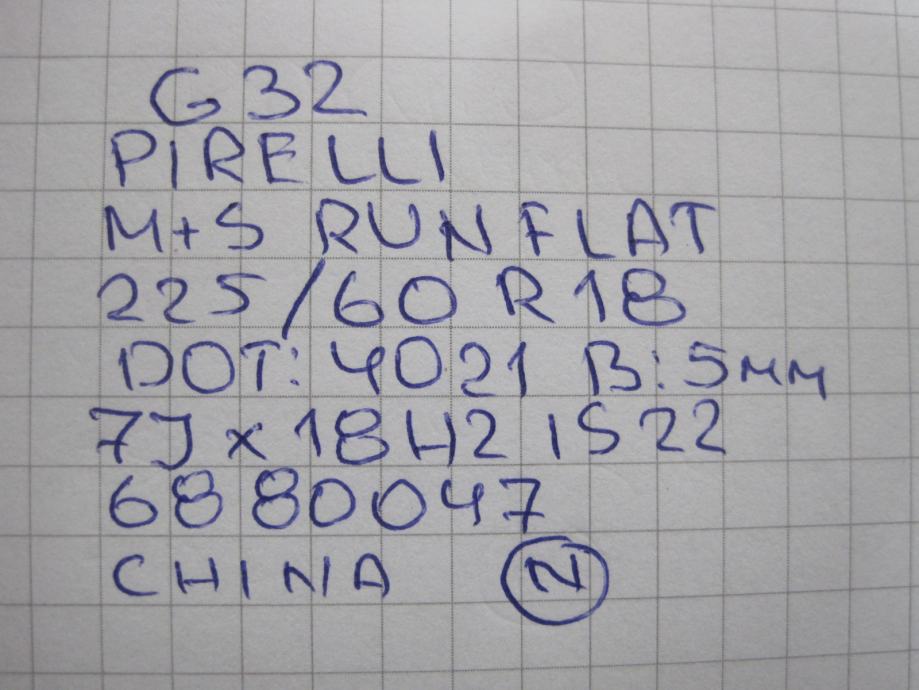 G32
PIRELLI
M+S RUNFLAT
225/60 R18
DOT: 4021 B: 5мм
7J x 18 H2 IS22
6880047
CHINA N